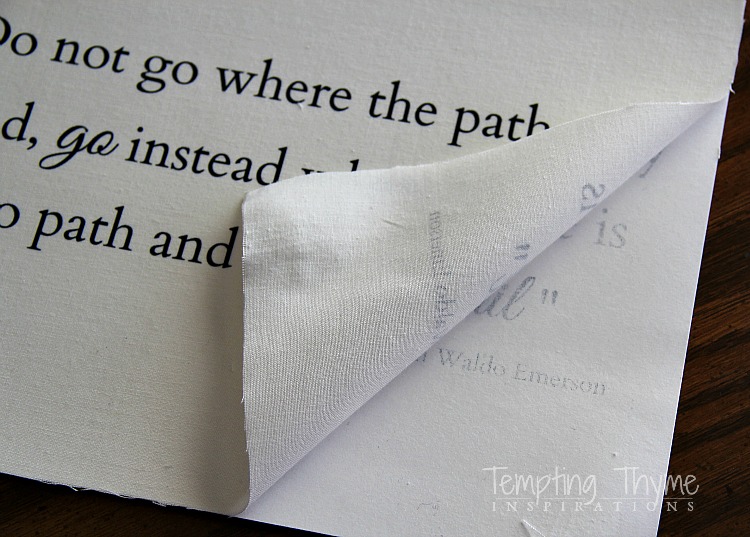 Do not go where the path
d, go instead
o path and
is
"
Waldo Emerson
Tempting Thyme
INSPIRATIONS